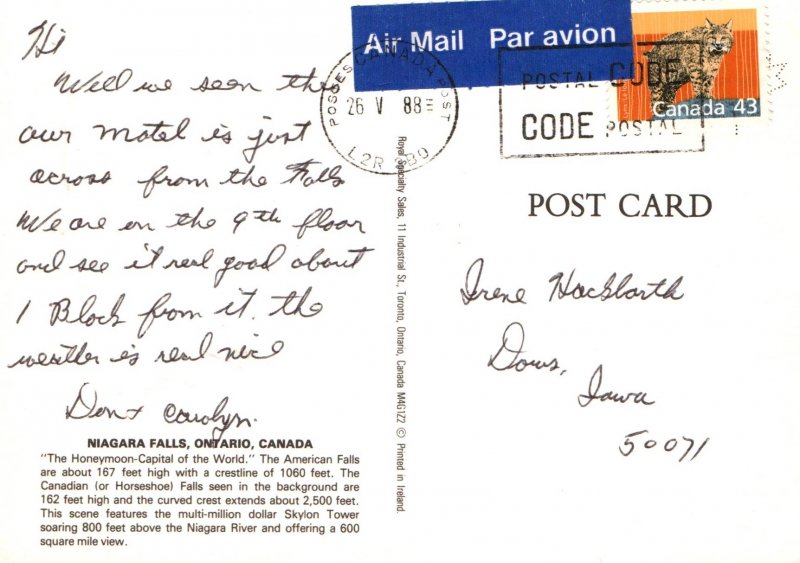 Hi
Well we seen this
our motel is just
across from the Falls
We are on the 9th floor
and see it real good about
1 Block from it. the
weather is real nice
Don + Carolyn.
NIAGARA FALLS, ONTARIO, CANADA
"The Honeymoon-Capital of the World." The American Falls
are about 167 feet high with a crestline of 1060 feet. The
Canadian (or Horseshoe) Falls seen in the background are
162 feet high and the curved crest extends about 2,500 feet.
This scene features the multi-million dollar Skylon Tower
soaring 800 feet above the Niagara River and offering a 600
square mile view.
Royal Specialty Sales, 11 Industrial St., Toronto, Ontario, Canada M4G1Z2 © Printed in Ireland.
Air Mail Par avion
POSTES CANADA POST
26 V 88
L2R
POSTAL CODE
CODE POSTAL
Canada 43
POST CARD
Irene Hackbarth
Dows,
Iowa
50071